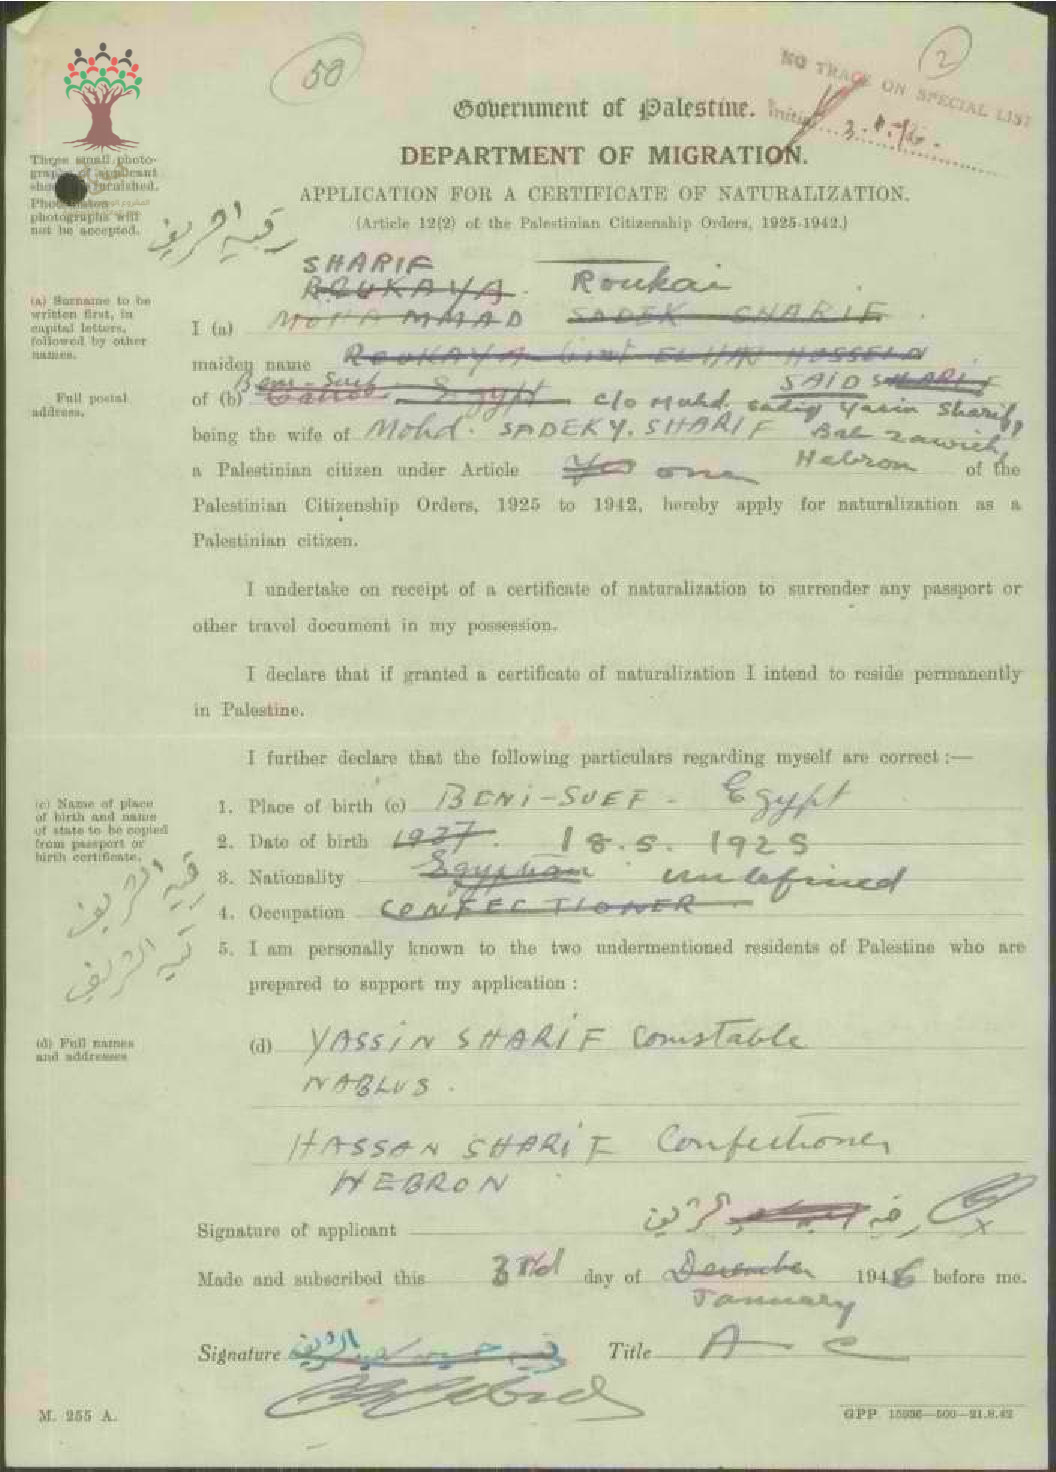 50
2
NO TRACE ON SPECIAL LIST
Initial
Government of Palestine.
DEPARTMENT OF MIGRATION.
APPLICATION FOR A CERTIFICATE OF NATURALIZATION.
(Article 12(2) of the Palestinian Citizenship Orders, 1925-1942.)
Three small photographs of applicant should be furnished.
photographs will
not be accepted.
رقيه الشريف
SHARIF
ROUKAYA. Roukai
(a) Surname to be
written first, in
capital letters,
followed by other
names.
I (a) MOHAMMAD SADEK SHARIF
maiden name ROUKAYA bint EL HAJ HOSSEIN
SAID SHARIF
Beni-Suef
Full postal
address.
of (b) Cairo - Egypt c/o Mohd. sadiq Yasin Sharif,
being the wife of Mohd. SADEK Y. SHARIF Bab zawieh,
Hebron
a Palestinian citizen under Article Yes one of the
Palestinian Citizenship Orders, 1925 to 1942, hereby apply for naturalization as a
Palestinian citizen.
I undertake on receipt of a certificate of naturalization to surrender any passport or
other travel document in my possession.
I declare that if granted a certificate of naturalization I intend to reside permanently
in Palestine.
I further declare that the following particulars regarding myself are correct :—
(c) Name of place
of birth and name
of state to be copied
from passport or
birth certificate.
1. Place of birth (c) BENI-SUEF - Egypt
2. Date of birth 1927. 18.5. 1925
3. Nationality Egyptian undefined
4. Occupation CONFECTIONER
رقيه الشريف
رقيه الشريف
5. I am personally known to the two undermentioned residents of Palestine who are
prepared to support my application :
(d) Full names
and addresses
(d) YASSIN SHARIF Constable
NABLUS.
HASSAN SHARIF Confectioner
HEBRON
Signature of applicant رقيه الشريف
Made and subscribed this 3rd day of December 1946 before me.
January
Signature رقيه حسين سعيد الشريف Title A C
M. 255 A.
GPP 15936—500—21.8.42